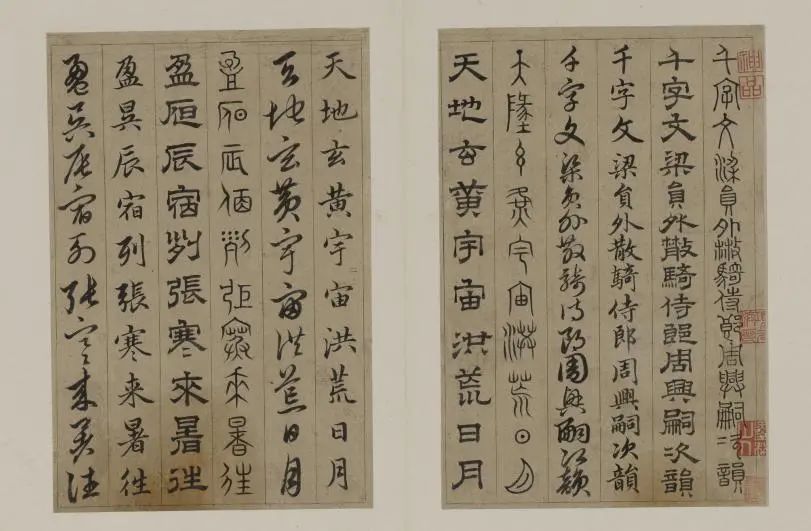 千字文梁員外散騎侍郎周興嗣次韻
千字文梁員外散騎侍郎周興嗣次韻
千字文梁員外散騎侍郎周興嗣次韻
千字文梁員外散騎侍郎周興嗣次韻
天地玄黃宇宙洪荒日月
天地玄黃宇宙洪荒日月
天地玄黃宇宙洪荒日月
天地玄黃宇宙洪荒日月
盈昃辰宿列張寒來暑往
盈昃辰宿列張寒來暑往
盈昃辰宿列張寒来暑往
盈昃辰宿列張寒来暑往